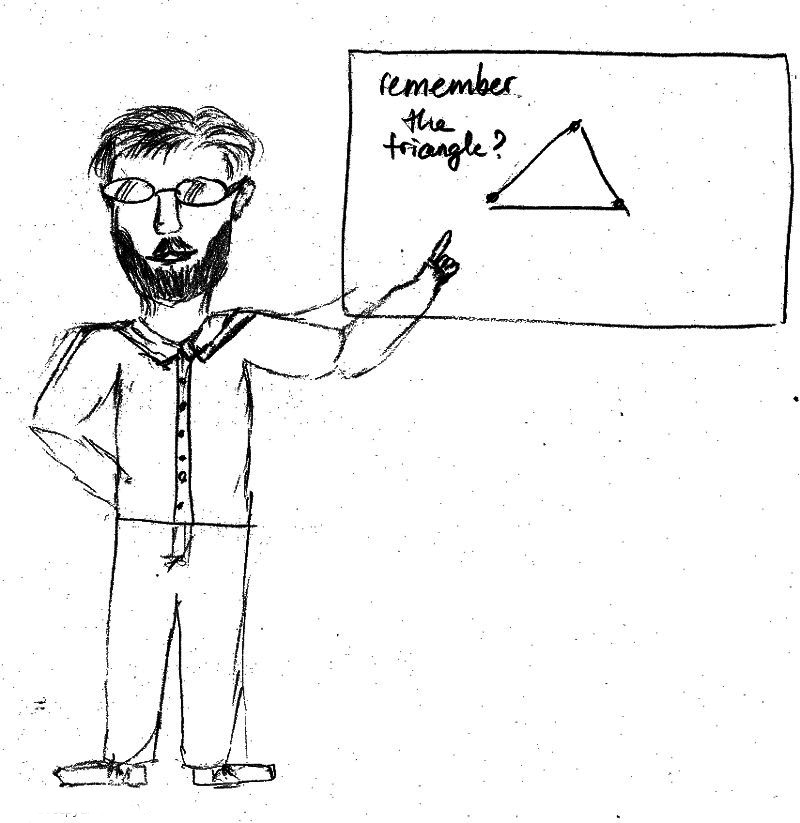 remember
the
triangle?